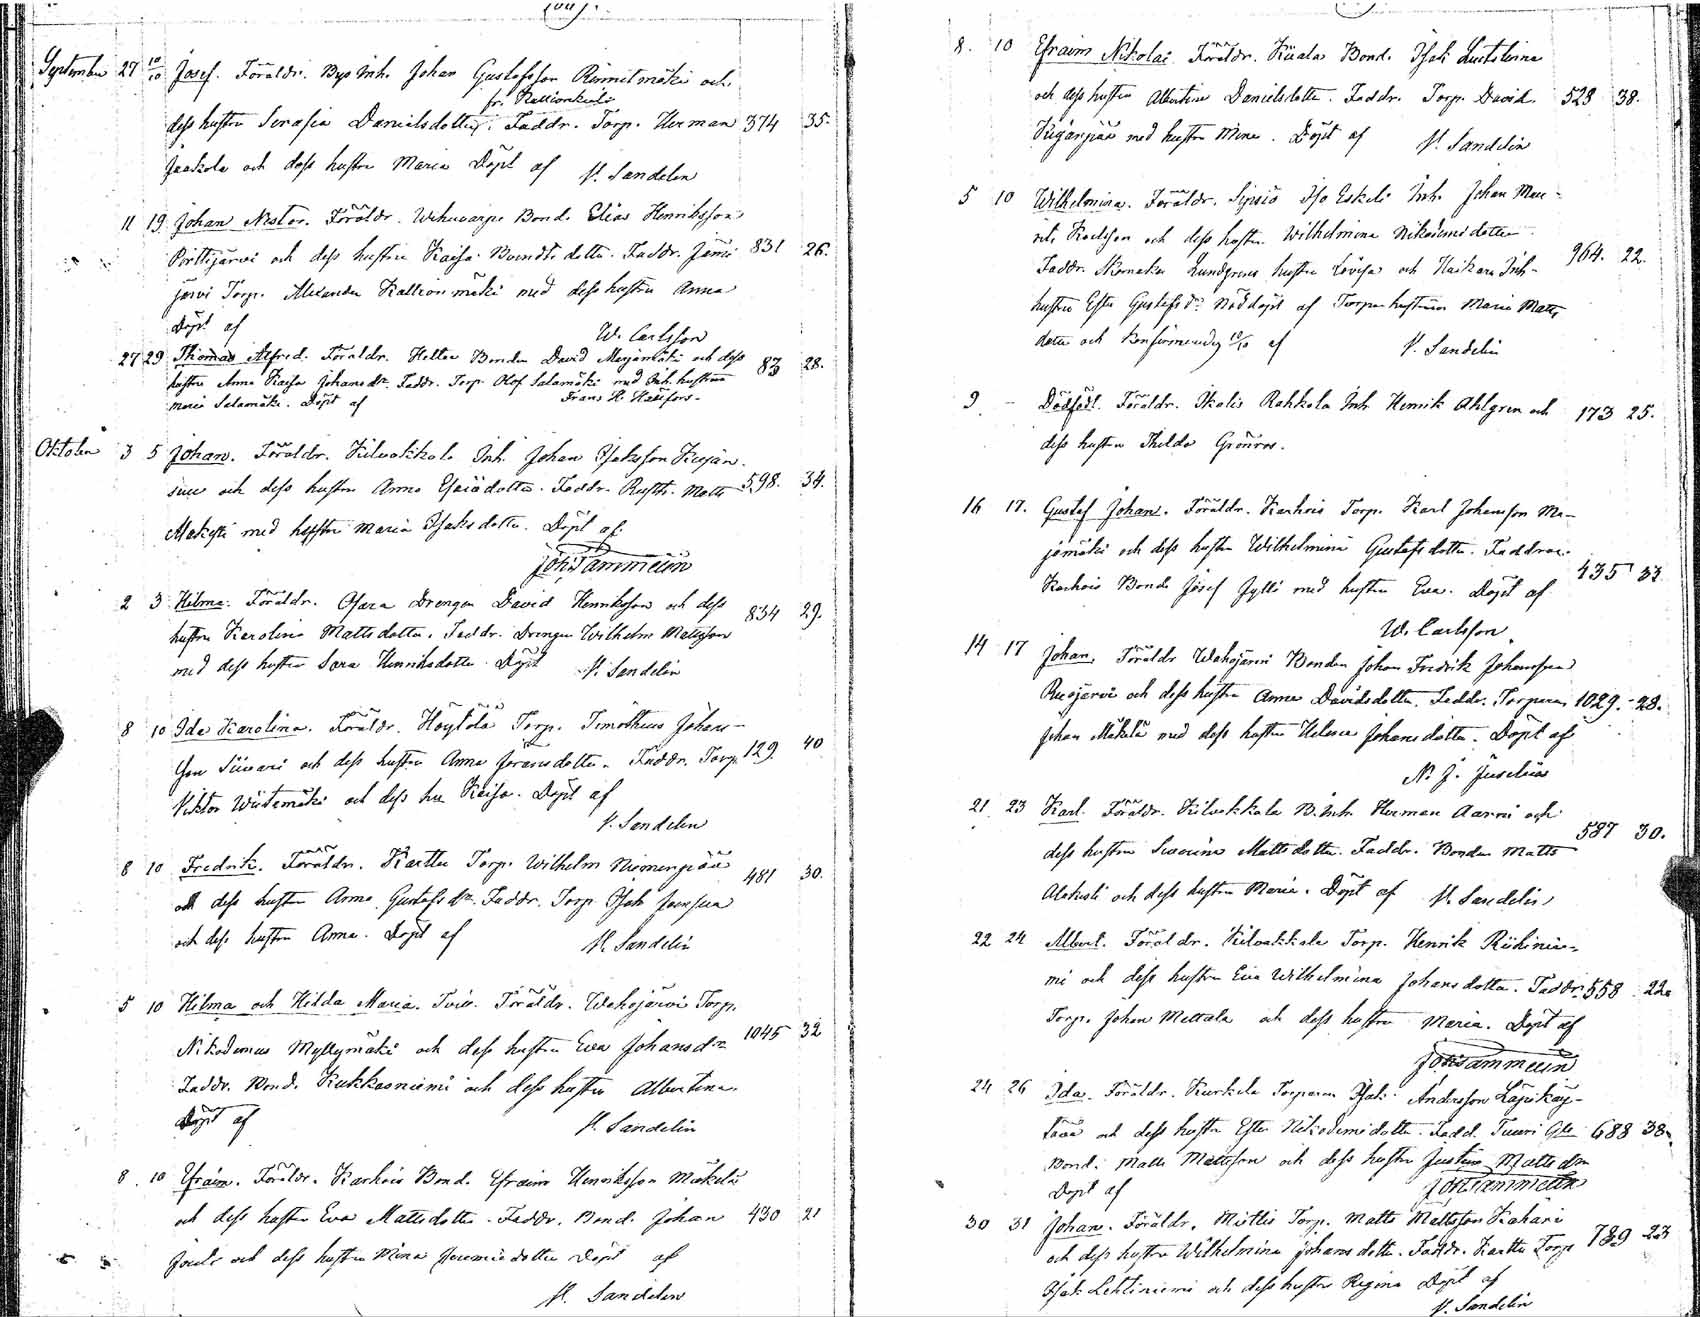 September 27 10/10 Josef. Föräldr. Bys Inh. Johan Gustafsson och
fr. Kallionkieli
dess hustru Serafia Danielsdotter. Faddr. Torp. Herman 374 35.
Jaakola och dess hustru Maria Döpt af V. Sandelin
11 19 Johan Nestor. Föräldr. Bond. Elias Henriksson
Porttijärvi och dess hustru Kaisa dotter. Faddr. Jämi 831 26.
järvi Torp. Alexander Kallionmäki med dess hustru Anna
Döpt af W. Carlsson
27 29 Thomas Alfred. Föräldr. Bonden David och dess
hustru Anna Kaisa Johansdr. Faddr. Torp. Olof Salamäki med Inh. hustrun 83 28.
Maria Salamäki. Döpt af Frans H.
Oktober 3 5 Johan. Föräldr. Kilvakkala Inh. Johan Isaksson
och dess hustru Anna Esaiädotter. Faddr. Rusth. Matts 598. 34.
med hustru Maria Isaksdotter. Döpt af
Joh. Tammelin
2 3 Hilma. Föräldr. Osara Drengen David Henriksson och dess 834 29.
hustru Karolina Mattsdotter. Faddr. Drengen Wilhelm Mattsson
med dess hustru Sara Henriksdotter. Döpt V. Sandelin
8 10 Ida Karolina. Föräldr. Höytölä Torp. Timotheus Johans-
son Siivari och dess hustru Anna dotter. Faddr. Torp. 129. 40
Viktor och dess hu Kaisa. Döpt af
V. Sandelin
8 10 Fredrik. Föräldr. Karttu Torp. Wilhelm Niemenpää 481 30.
och dess hustru Anna Gustafsdr. Faddr. Torp. Isak
och dess hustru Anna. Döpt af V. Sandelin
5 10 Hilma och Hilda Maria. Tvill. Föräldr. Wahojärvi Torp.
Nikodemus Myllymäki och dess hustru Eva Johansdr 1045 32
Faddr. Bond. Kukkasniemi och dess hustru Albertina.
Döpt af V. Sandelin
8 10 Efraim. Föräldr. Karhois Bond. Efraim Henriksson Mäkelä
och dess hustru Eva Mattsdotter. Faddr. Bond. Johan 430 21
och dess hustru Mina Jeremiädotter Döpt af
V. Sandelin
8. 10 Efraim Nikolai. Föräldr. Bond. Isak
och dess hustru Albertina Danielsdotter. Faddr. Torp. David 528 38.
med hustru Mina. Döpt af V. Sandelin
5 10 Wilhelmina. Föräldr. Sipsiö Iso Eskeli Inh. Johan Mau-
rits Karlsson och dess hustru Wilhelmina Nikodemidotter 964. 22.
Faddr. Skomakar Lundgrens hustru Lovisa och Inh-
hustru Ester Gustafsdr. Nöddöpt af Torpar hustrun Maria Matts
dotter och 10/10 af V. Sandelin
9 - Dödfödt. Föräldr. Rahkola Inh. Henrik Ahlgren och 173 25.
dess hustru Thilda Grönros.
16 17. Gustaf Johan. Föräldr. Karhois Torp. Karl Johansson Ma-
jamäki och dess hustru Wilhelmina Gustafsdotter. Faddrar 435 33
Karhois Bond. Josef Jylli med hustru Eva. Döpt af
W. Carlsson
14 17 Johan. Föräldr. Wahojärvi Bonden Johan Fredrik Johansson
Ruojärvi och dess hustru Anna Davidsdotter. Faddr. Torparen 1029. 28.
Johan Mäkelä med dess hustru Helena Johansdotter. Döpt af
N. J. Juselius
21 23 Karl. Föräldr. Kilvakkala B. Inh. Herman Aarni och 587 30.
dess hustru Severina Mattsdotter. Faddr. Bonden Matts
och dess hustru Maria. Döpt af V. Sandelin
22 24 Albert. Föräldr. Kilvakkala Torp. Henrik Riihinie-
mi och dess hustru Eva Wilhelmina Johansdotter. Faddr. 558 22.
Torp. Johan Mettala och dess hustru Maria. Döpt af
Joh. Tammelin
24 26 Ida. Föräldr. Kurkela Torparen Isak Andersson
och dess hustru Ester Nikodemidotter. Fadd. 688 38.
Bond. Matts Mattsson och dess hustru Justina Mattsdr
Döpt af Joh. Tammelin
30 31 Johan. Föräldr. Torp. Matts Mattsson Kahari 789 23
och dess hustru Wilhelmina Johansdotter. Faddr. Karttu Torp
Isak Lehtiniemi och dess hustru Regina Döpt af
V. Sandelin